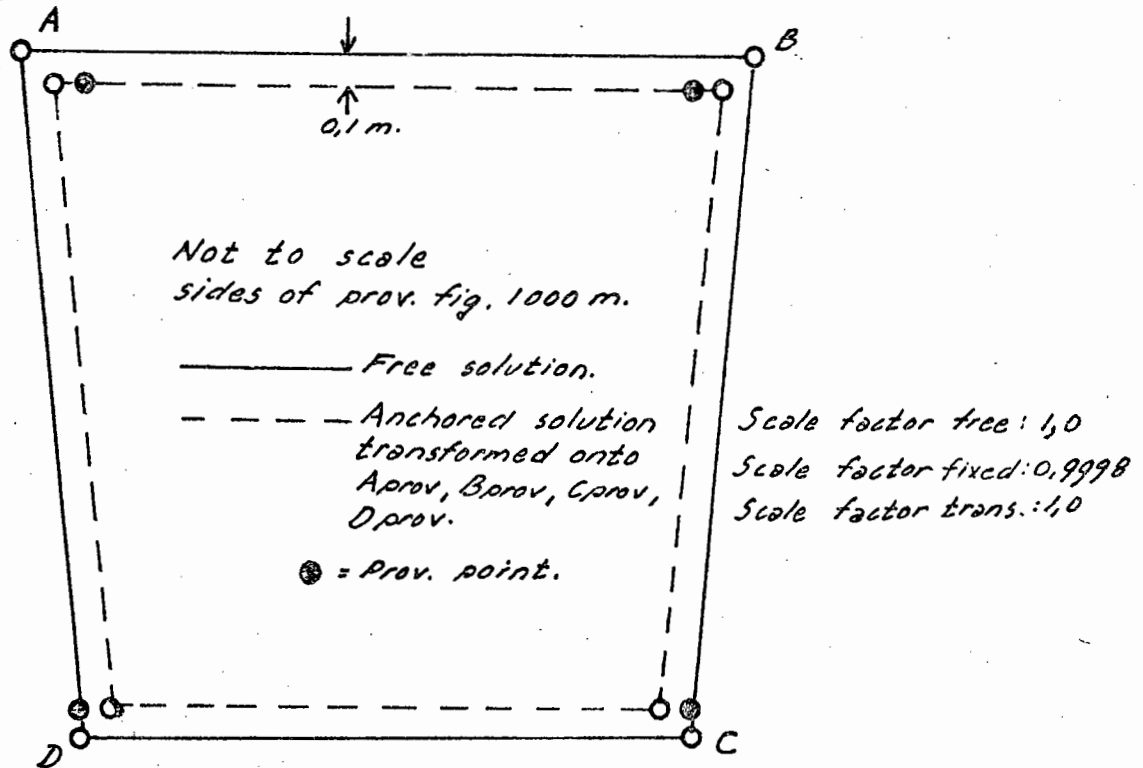 A
B
0,1 m.
Not to scale
sides of prov. fig. 1000 m.
Free solution.
Anchored solution
transformed onto
Aprov, Bprov, Cprov,
Dprov.
= Prov. point.
Scale factor free: 1,0
Scale factor fixed: 0,9998
Scale factor trans.: 1,0
D
C